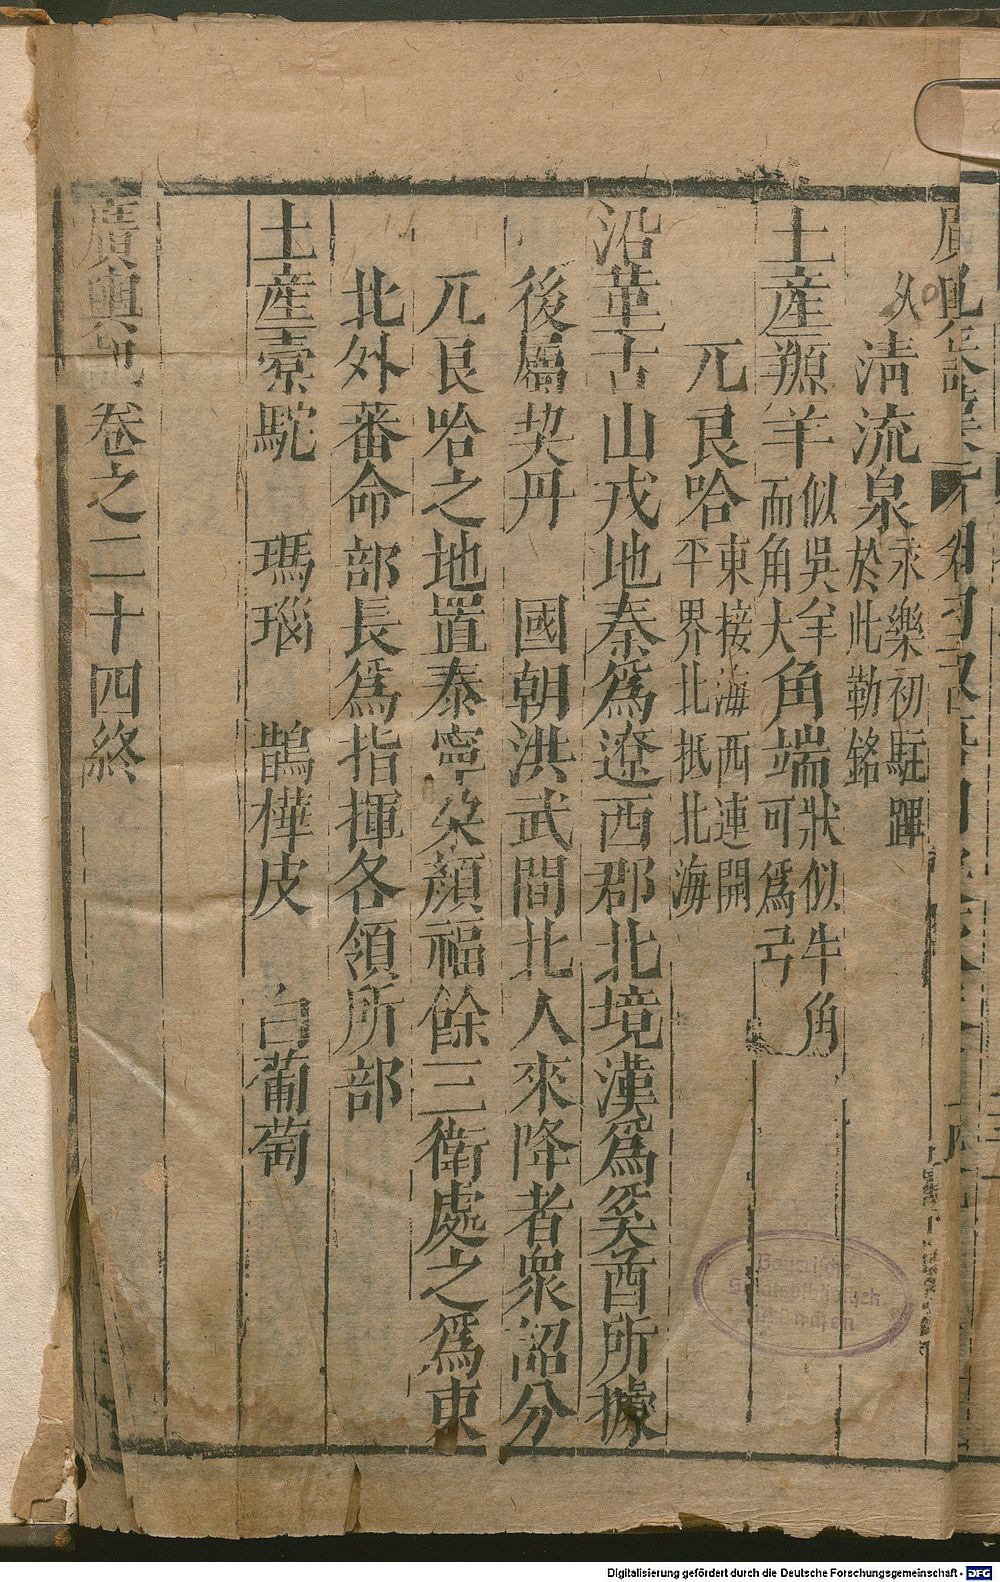 清流泉永樂初駐蹕於此勒銘
土産羱羊似吳羊而角大角端狀似牛角可爲弓
兀良哈東接海西連開平界北抵北海
沿革古山戎地秦爲遼西郡北境漢爲奚酋所據
後屬契丹 國朝洪武間北人來降者衆詔分
兀良哈之地置泰寧朶顏福餘三衛處之爲東
北外蕃命部長爲指揮各領所部
土産橐駝 瑪瑙 鵲樺皮 白葡萄
廣輿記卷之二十四終
Bayerische
Staatsbibliothek
München
Digitalisierung gefördert durch die Deutsche Forschungsgemeinschaft - DFG